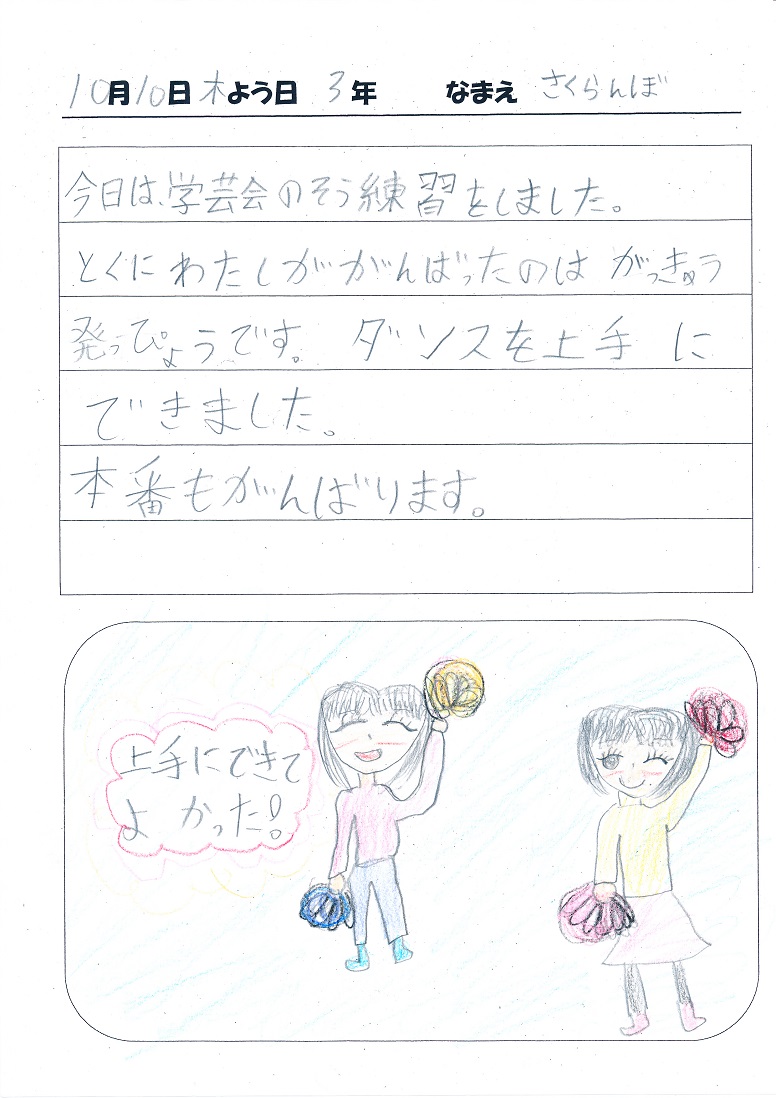 10月10日木よう日 3年 なまえ さくらんぼ
今日は、学芸会のそう練習をしました。
とくにわたしががんばったのは がっきゅう
発っぴょうです。 ダンスを上手 に
できました。
本番もがんばります。
上手にできて
よ かった!